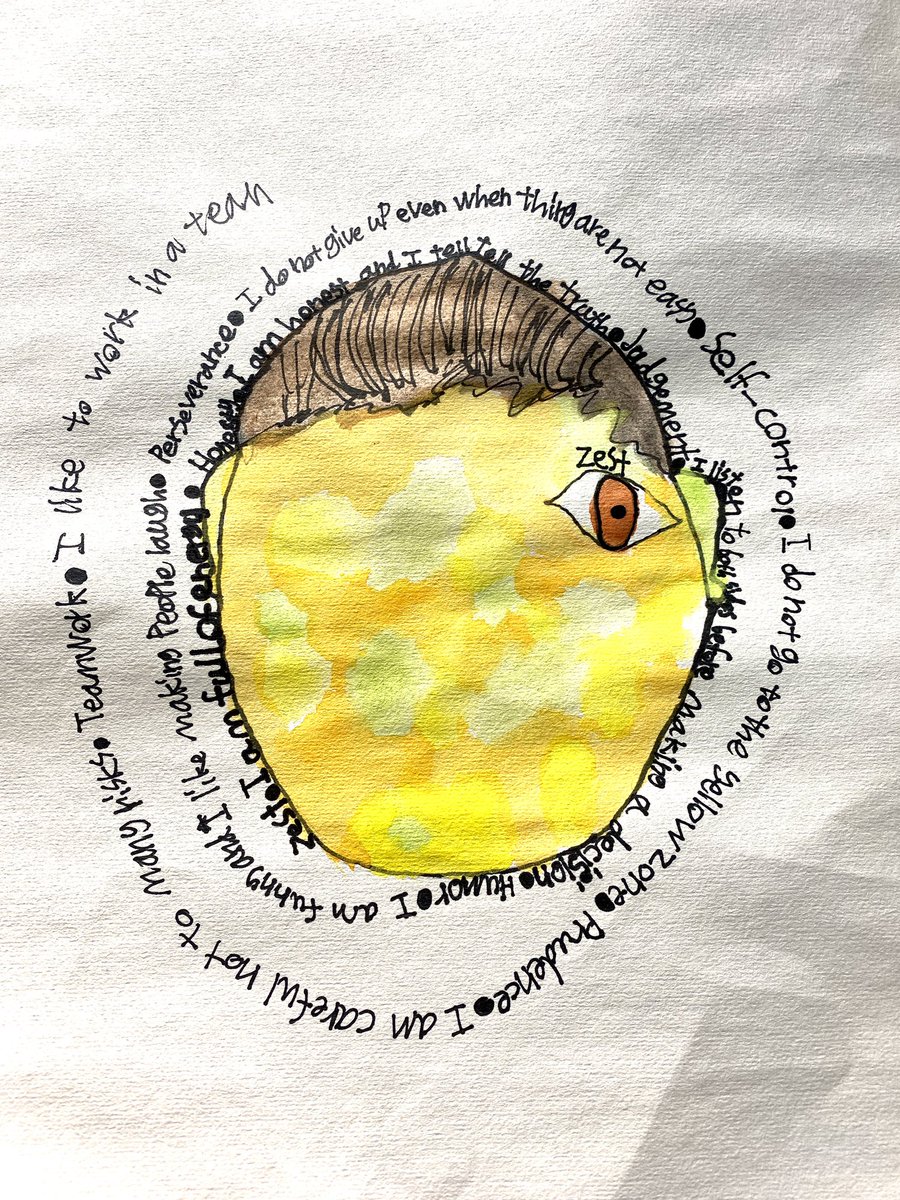 zest
zest. I am full of energy • Honesty • I am honest and I tell the truth • Judgement • I listen to before making a decision • Humor • I am funny and I like making People laugh • Perseverance • I do not give up even when thing are not easy • Self-control • I do not go to the yellow zone • Prudence • I am careful not to many risks • Teamwork • I like to work in a team